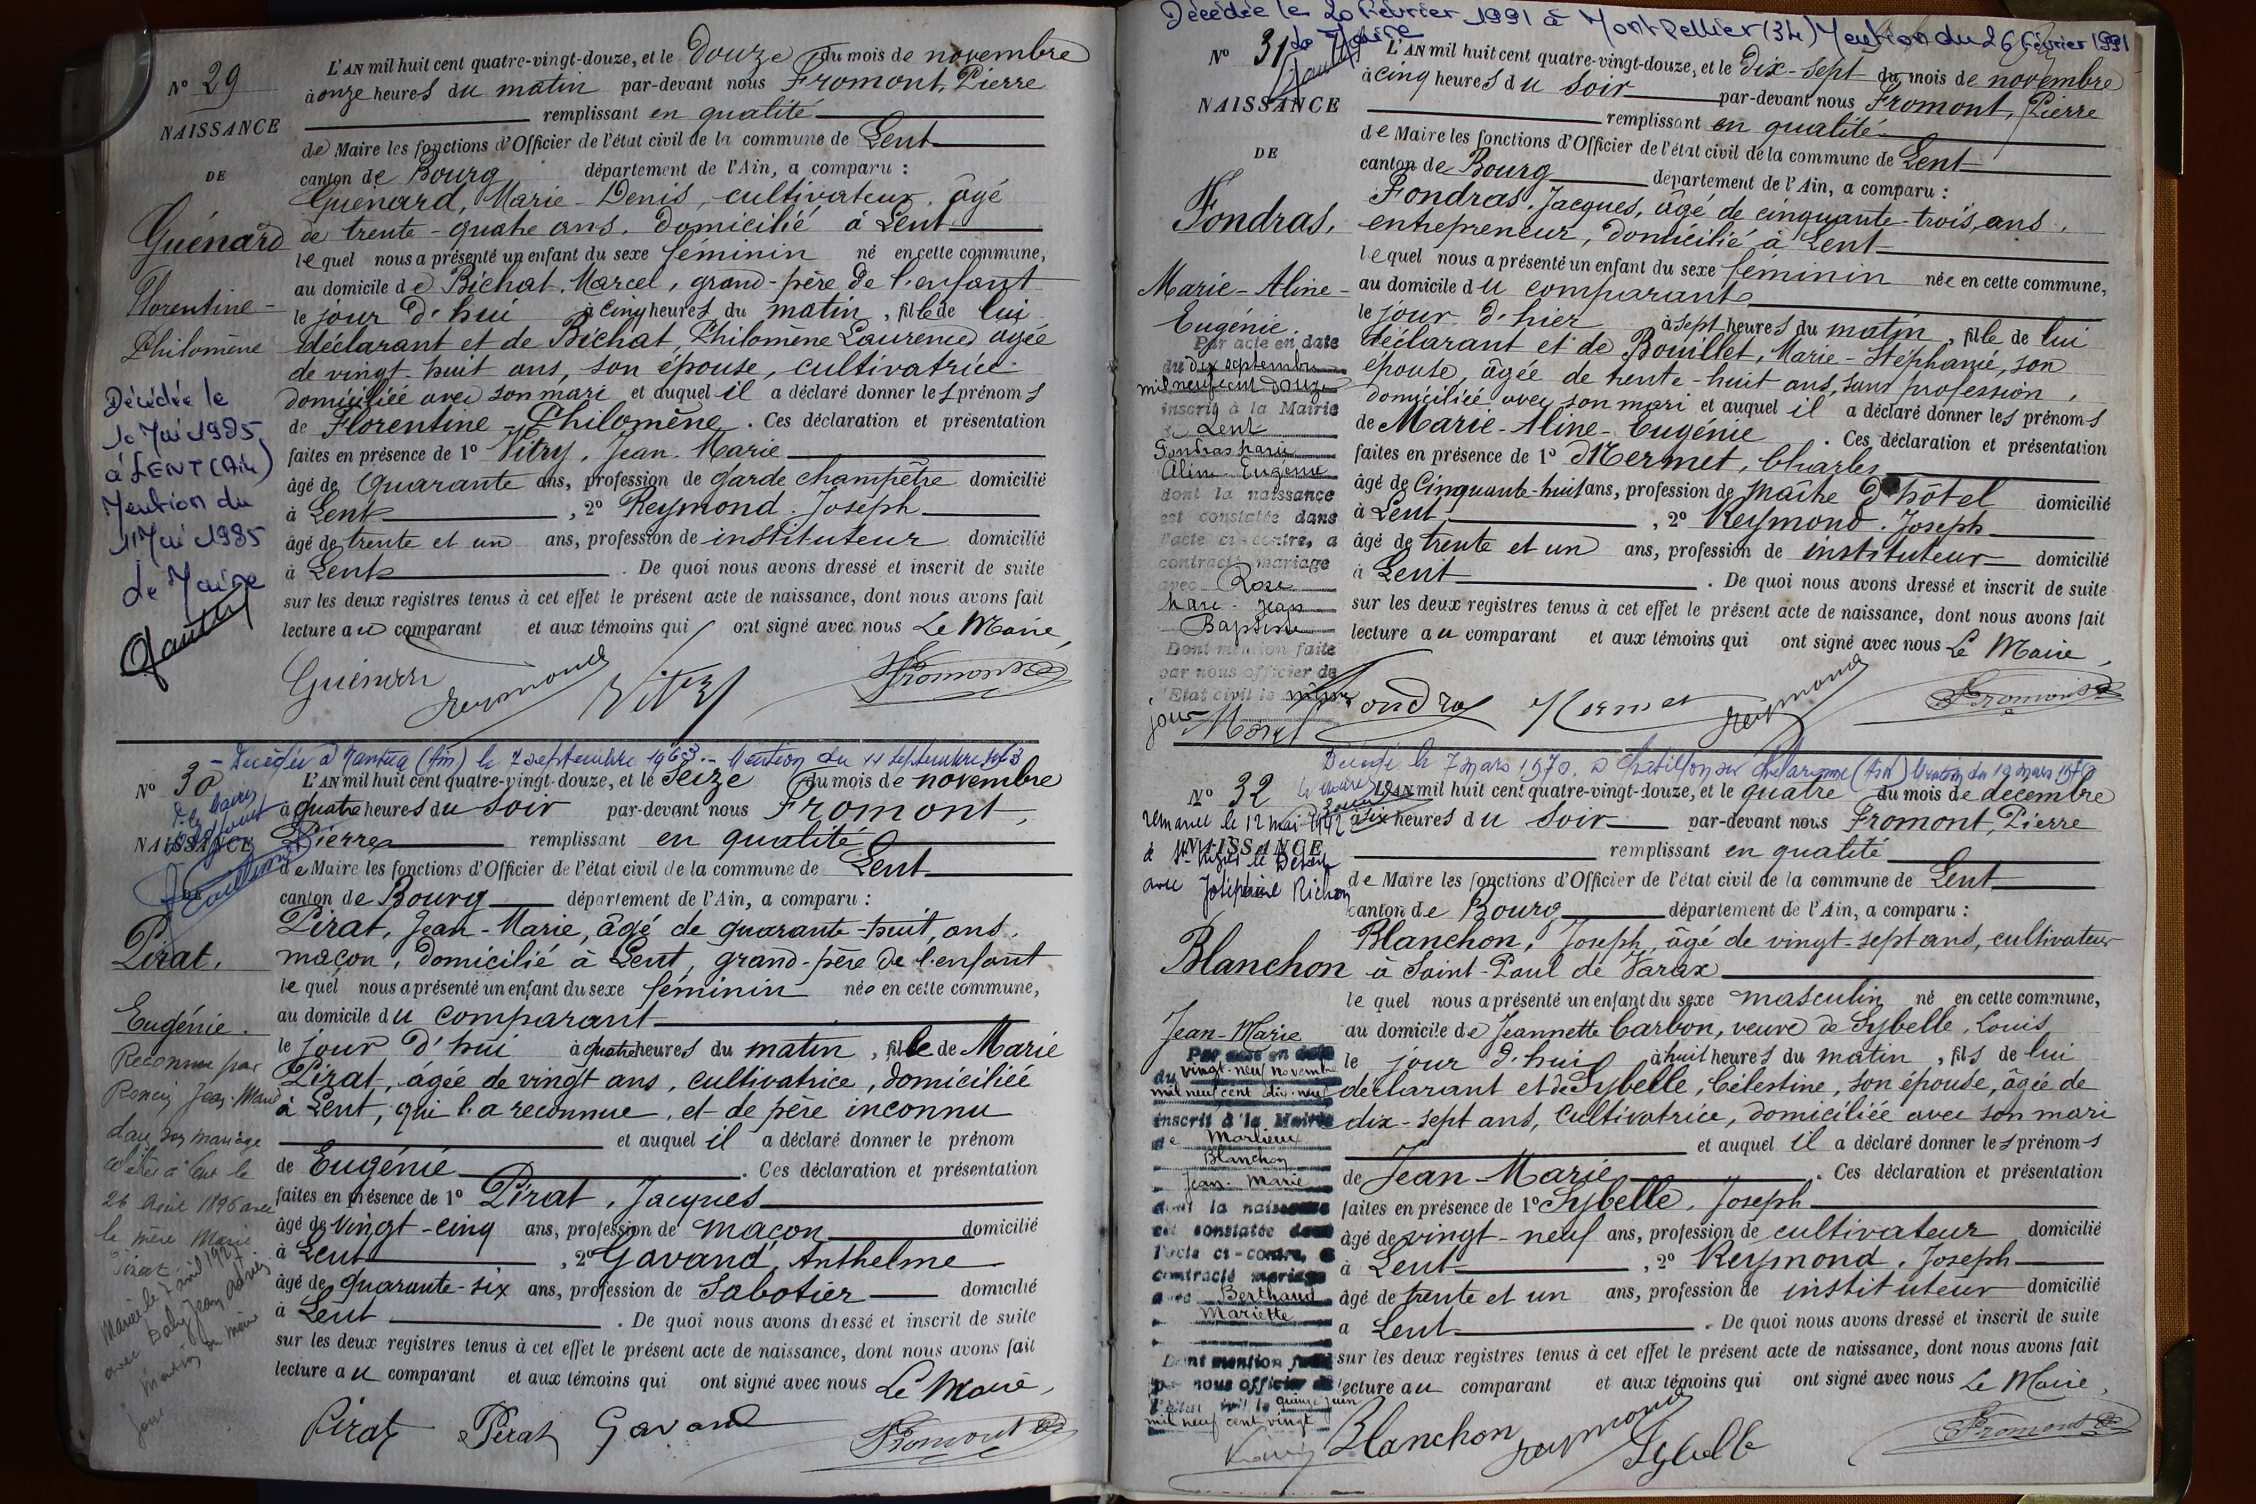 N° 29
NAISSANCE
DE
Guénard
Florentine-
Philomène
Décédée le
10 Mai 1985
à LENT (Ain)
Mention du
11 Mai 1985
Le Maire
L'AN mil huit cent quatre-vingt-douze, et le Douze du mois de novembre
à onze heures du matin par-devant nous Fromont, Pierre
remplissant en qualité
de Maire les fonctions d'Officier de l'état civil de la commune de Lent
canton de Bourg département de l'Ain, a comparu :
Guénard, Marie-Denis, cultivateur, âgé
de trente-quatre ans, domicilié à Lent
lequel nous a présenté un enfant du sexe féminin né en cette commune,
au domicile de Bichat, Marcel, grand-père de l'enfant
le jour d'hui à cinq heures du matin, fille de lui
déclarant et de Bichat, Philomène Laurence âgée
de vingt-huit ans, son épouse, cultivatrice
domiciliée avec son mari et auquel il a déclaré donner les prénoms
de Florentine-Philomène. Ces déclaration et présentation
faites en présence de 1° Vitry, Jean-Marie
âgé de Quarante ans, profession de garde champêtre domicilié
à Lent, 2° Reymond, Joseph
âgé de trente et un ans, profession de instituteur domicilié
à Lent. De quoi nous avons dressé et inscrit de suite
sur les deux registres tenus à cet effet le présent acte de naissance, dont nous avons fait
lecture au comparant et aux témoins qui ont signé avec nous Le Maire,
Guénard Reymond Vitry Fromont
- Décédée à Nantua (Ain) le 7 septembre 1963.- Mention du 11 septembre 1963
N° 30
NAISSANCE
Pirat,
Eugénie.
Reconnue par
Roncin Jean-Marie
dans son mariage
célébré à Lent le
26 Avril 1896 avec
la mère Marie
Pirat
L'AN mil huit cent quatre-vingt-douze, et le Seize du mois de novembre
à quatre heures du soir par-devant nous Fromont,
Pierre remplissant en qualité
de Maire les fonctions d'Officier de l'état civil de la commune de Lent
canton de Bourg département de l'Ain, a comparu :
Pirat, Jean-Marie, âgé de quarante-huit ans,
maçon, domicilié à Lent, grand-père de l'enfant
lequel nous a présenté un enfant du sexe féminin née en cette commune,
au domicile du comparant
le jour d'hui à quatre heures du matin, fille de Marie
Pirat, âgée de vingt ans, cultivatrice, domiciliée
à Lent, qui l'a reconnue, et de père inconnu
et auquel il a déclaré donner le prénom
de Eugénie. Ces déclaration et présentation
faites en présence de 1° Pirat, Jacques
âgé de vingt-cinq ans, profession de maçon domicilié
à Lent, 2° Gavand, Anthelme
âgé de quarante-six ans, profession de sabotier domicilié
à Lent. De quoi nous avons dressé et inscrit de suite
sur les deux registres tenus à cet effet le présent acte de naissance, dont nous avons fait
lecture au comparant et aux témoins qui ont signé avec nous Le Maire,
Pirat Pirat Gavand Fromont
Décédée le 20 Février 1991 à Montpellier (34) Mention du 26 février 1991
Le Maire
N° 31
NAISSANCE
DE
Fondras,
Marie-Aline-
Eugénie.
Par acte en date
du dix septembre
mil neuf cent douze
inscrit à la Mairie
de Lent
Fondras Marie
Aline Eugénie
dont la naissance
est constatée dans
l'acte ci-contre, a
contracté mariage
avec Rose
Marc-Jean
Baptiste
Dont mention faite
par nous officier de
l'Etat civil le même
jour
L'AN mil huit cent quatre-vingt-douze, et le dix-sept du mois de novembre
à cinq heures du soir par-devant nous Fromont, Pierre
remplissant en qualité
de Maire les fonctions d'Officier de l'état civil de la commune de Lent
canton de Bourg département de l'Ain, a comparu :
Fondras, Jacques, âgé de cinquante-trois, ans,
entrepreneur, domicilié à Lent
lequel nous a présenté un enfant du sexe féminin née en cette commune,
au domicile du comparant
le jour d'hier à sept heures du matin, fille de lui
déclarant et de Bouillet, Marie-Stéphanie, son
épouse, âgée de trente-huit ans, sans profession,
domiciliée avec son mari et auquel il a déclaré donner les prénoms
de Marie-Aline-Eugénie. Ces déclaration et présentation
faites en présence de 1° Mermet, Charles
âgé de Cinquante-huit ans, profession de maître d'hôtel domicilié
à Lent, 2° Reymond, Joseph
âgé de trente et un ans, profession de instituteur domicilié
à Lent. De quoi nous avons dressé et inscrit de suite
sur les deux registres tenus à cet effet le présent acte de naissance, dont nous avons fait
lecture au comparant et aux témoins qui ont signé avec nous Le Maire,
Fondras Mermet Reymond Fromont
Décédé le 7 mars 1970 à Chatillon sur Chalaronne (Ain) Mention du 19 mars 1970
le Maire
N° 32
remarié le 12 mai 1942
NAISSANCE
avec Joséphine Richon
Blanchon
Jean-Marie
Par acte en date
du vingt-neuf novembre
mil neuf cent dix-neuf
inscrit à la Mairie
de Marlieux
Blanchon
Jean-Marie
dont la naissance
est constatée dans
l'acte ci-contre, a
contracté mariage
avec Berthaud
Mariette
Dont mention faite
par nous officier de
l'état civil le quinze juin
mil neuf cent vingt
L'AN mil huit cent quatre-vingt-douze, et le quatre du mois de décembre
à six heures du soir par-devant nous Fromont, Pierre
remplissant en qualité
de Maire les fonctions d'Officier de l'état civil de la commune de Lent
canton de Bourg département de l'Ain, a comparu :
Blanchon, Joseph, âgé de vingt-sept ans, cultivateur
à Saint-Paul de Varax
lequel nous a présenté un enfant du sexe masculin né en cette commune,
au domicile de Jeannette Carbon, veuve de Sybelle, Louis
le jour d'hui à huit heures du matin, fils de lui
déclarant et de Sybelle, Célestine, son épouse, âgée de
dix-sept ans, cultivatrice, domiciliée avec son mari
et auquel il a déclaré donner les prénoms
de Jean-Marie. Ces déclaration et présentation
faites en présence de 1° Sybelle, Joseph
âgé de vingt-neuf ans, profession de cultivateur domicilié
à Lent, 2° Reymond, Joseph
âgé de trente et un ans, profession de instituteur domicilié
à Lent. De quoi nous avons dressé et inscrit de suite
sur les deux registres tenus à cet effet le présent acte de naissance, dont nous avons fait
lecture au comparant et aux témoins qui ont signé avec nous Le Maire,
Blanchon Reymond Sybelle Fromont